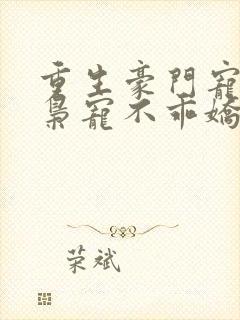 重生豪門寵
梟寵不乖嬌
荣斌